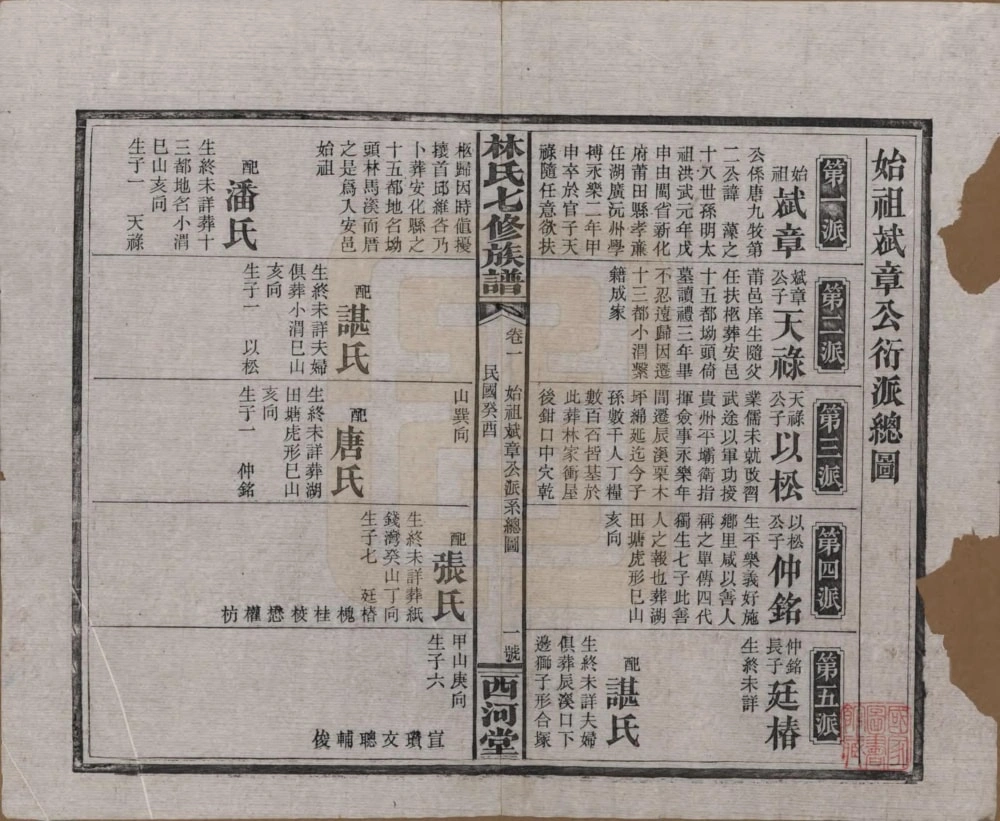 始祖斌章公衍派總圖
第一派
始祖斌章
公係唐九牧第
二公諱藻之
十八世孫明太
祖洪武元年戊
申由閩省新化
府莆田縣孝亷
任湖廣沅州學
搏永樂二年甲
申卒於官子天
祿隨任意欲扶
柩歸因時值擾
攘首邱維谷乃
卜葬安化縣之
十五都地名坳
頭林馬溪而厝
之是爲入安邑
始祖
配潘氏
生終未詳葬十
三都地名小淍
巳山亥向
生子一 天祿
第二派
斌章公子天祿
莆邑庠生隨父
任扶柩葬安邑
十五都坳頭倚
墓讀禮三年畢
不忍遠歸因遷
十三都小淍繫
籍成家
配諶氏
生終未詳夫婦
俱葬小淍巳山
亥向
生子一 以松
第三派
天祿公子以松
業儒未就改習
武途以軍功授
貴州平壩衛指
揮僉事永樂年
間遷辰溪栗木
坪綿延迄今子
孫數千人丁糧
數百石皆基於
此葬林家衝屋
後鉗口中穴乾
山巽向
配唐氏
生終未詳葬湖
田塘虎形巳山
亥向
生子一 仲銘
第四派
以松公子仲銘
生平樂義好施
鄉里咸以善人
稱之單傳四代
獨生七子此善
人之報也葬湖
田塘虎形巳山
亥向
配張氏
生終未詳葬紙
錢灣癸山丁向
生子七 廷椿
槐
桂
枝
懋
權
枋
第五派
仲銘長子廷椿
生終未詳
配諶氏
生終未詳夫婦
俱葬辰溪口下
邊獅子形合塚
甲山庚向
生子六
宣
瓚
文
聰
輔
俊
林氏七修族譜
卷一
民國癸酉
始祖斌章公派系總圖
一號
西河堂